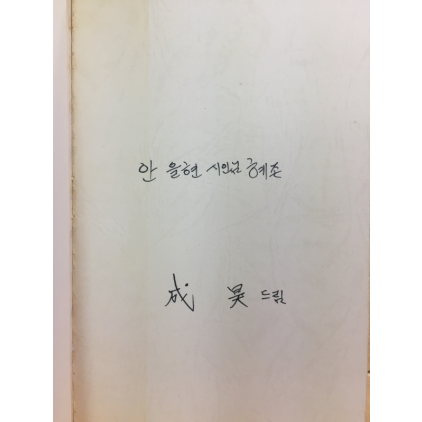 안 을현 시인님 혜존
成 昊 드림